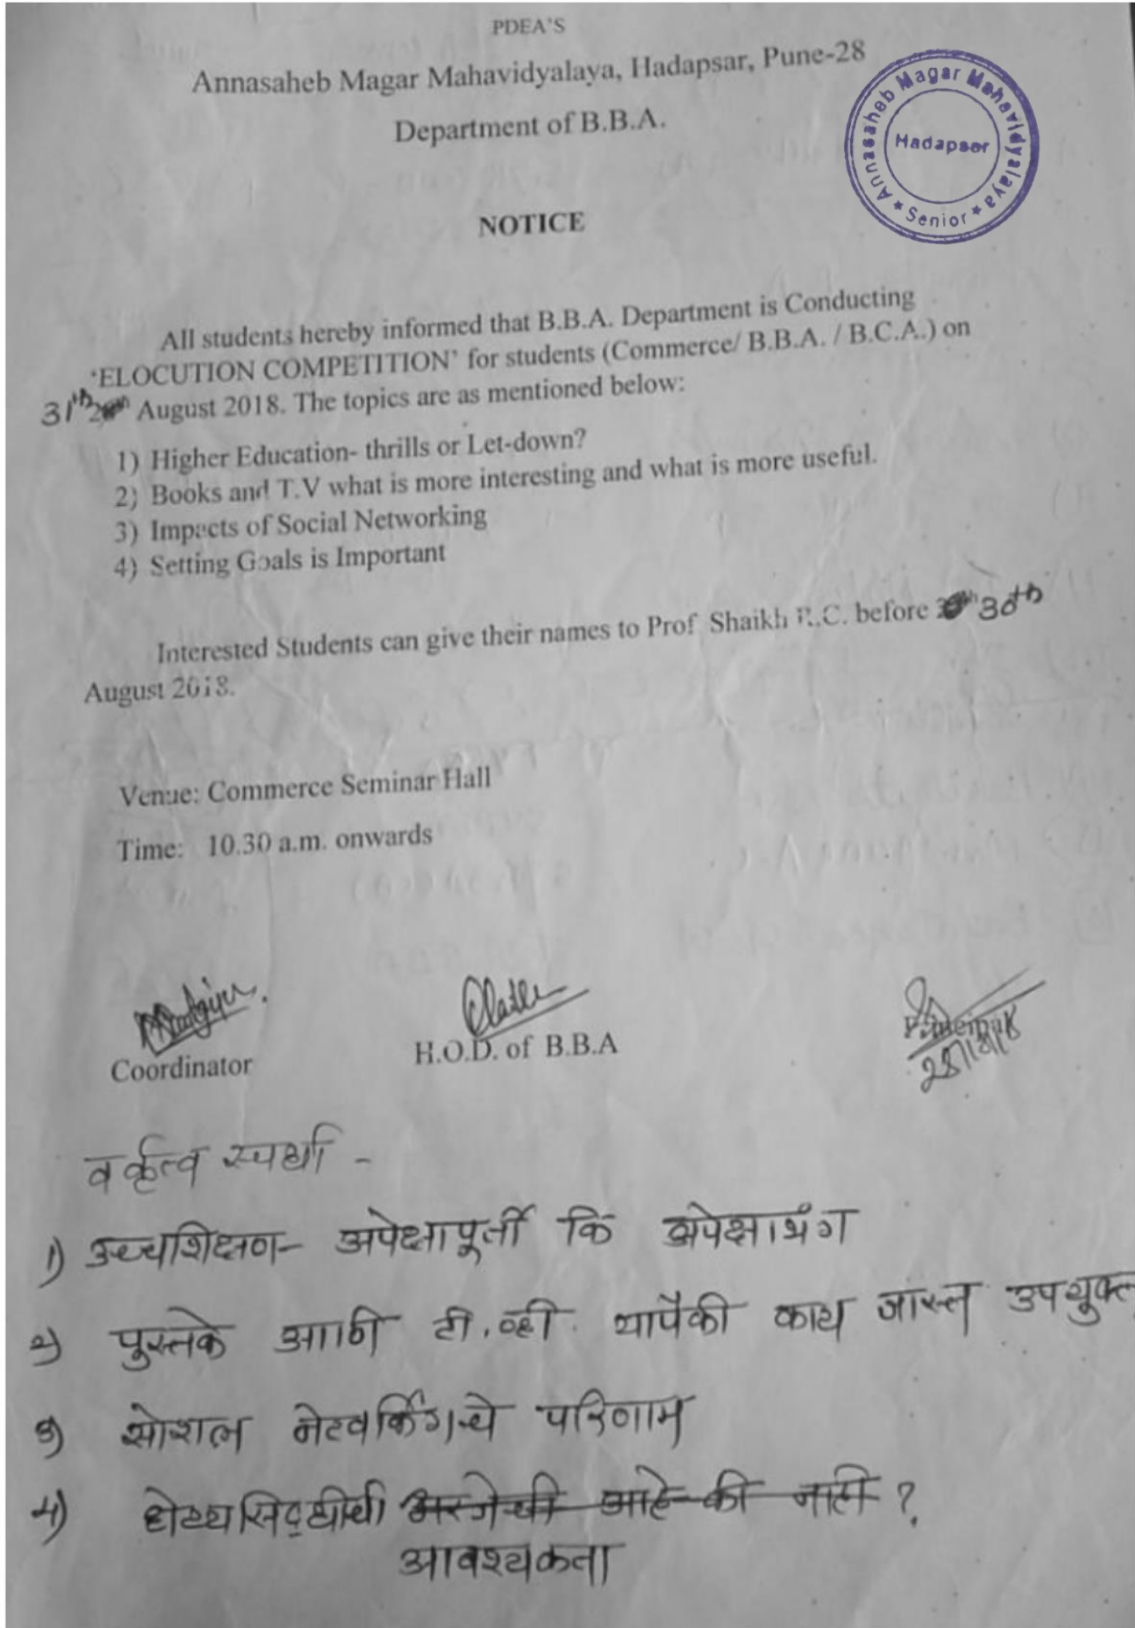 PDEA'S
Annasaheb Magar Mahavidyalaya, Hadapsar, Pune-28
Department of B.B.A.
Annasaheb Magar Mahavidyalaya
Hadapsar
★ Senior ★
NOTICE
All students hereby informed that B.B.A. Department is Conducting
'ELOCUTION COMPETITION' for students (Commerce/ B.B.A. / B.C.A.) on
31th August 2018. The topics are as mentioned below:
1) Higher Education- thrills or Let-down?
2) Books and T.V what is more interesting and what is more useful.
3) Impacts of Social Networking
4) Setting Goals is Important
Interested Students can give their names to Prof Shaikh R.C. before 30th
August 2018.
Venue: Commerce Seminar Hall
Time: 10.30 a.m. onwards
Coordinator
H.O.D. of B.B.A
Principal
वर्कृत्व स्पर्धा -
1) उच्चशिक्षण- अपेक्षापूर्ती कि अपेक्षाभंग
२) पुस्तके आणि टी.व्ही. यापैकी काय जास्त उपयुक्त
३) सोशल नेटवर्किंगचे परिणाम
4) ध्येय्यसिद्धीची अरजेची आहे की नाही ?
आवश्यकता